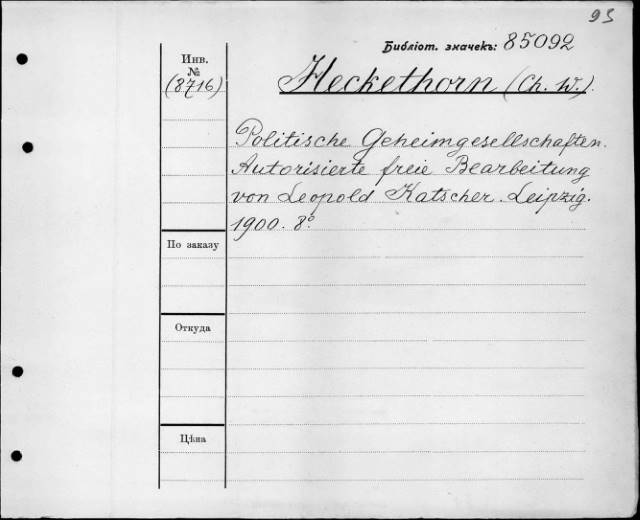 93
Библіот. значекъ: 85092
Инв.
№
(8716)
Heckethorn (Ch. W.).
Politische Geheimgesellschaften.
Autorisierte freie Bearbeitung
von Leopold Katscher. Leipzig.
1900. 8°.
По заказу
Откуда
Цѣна